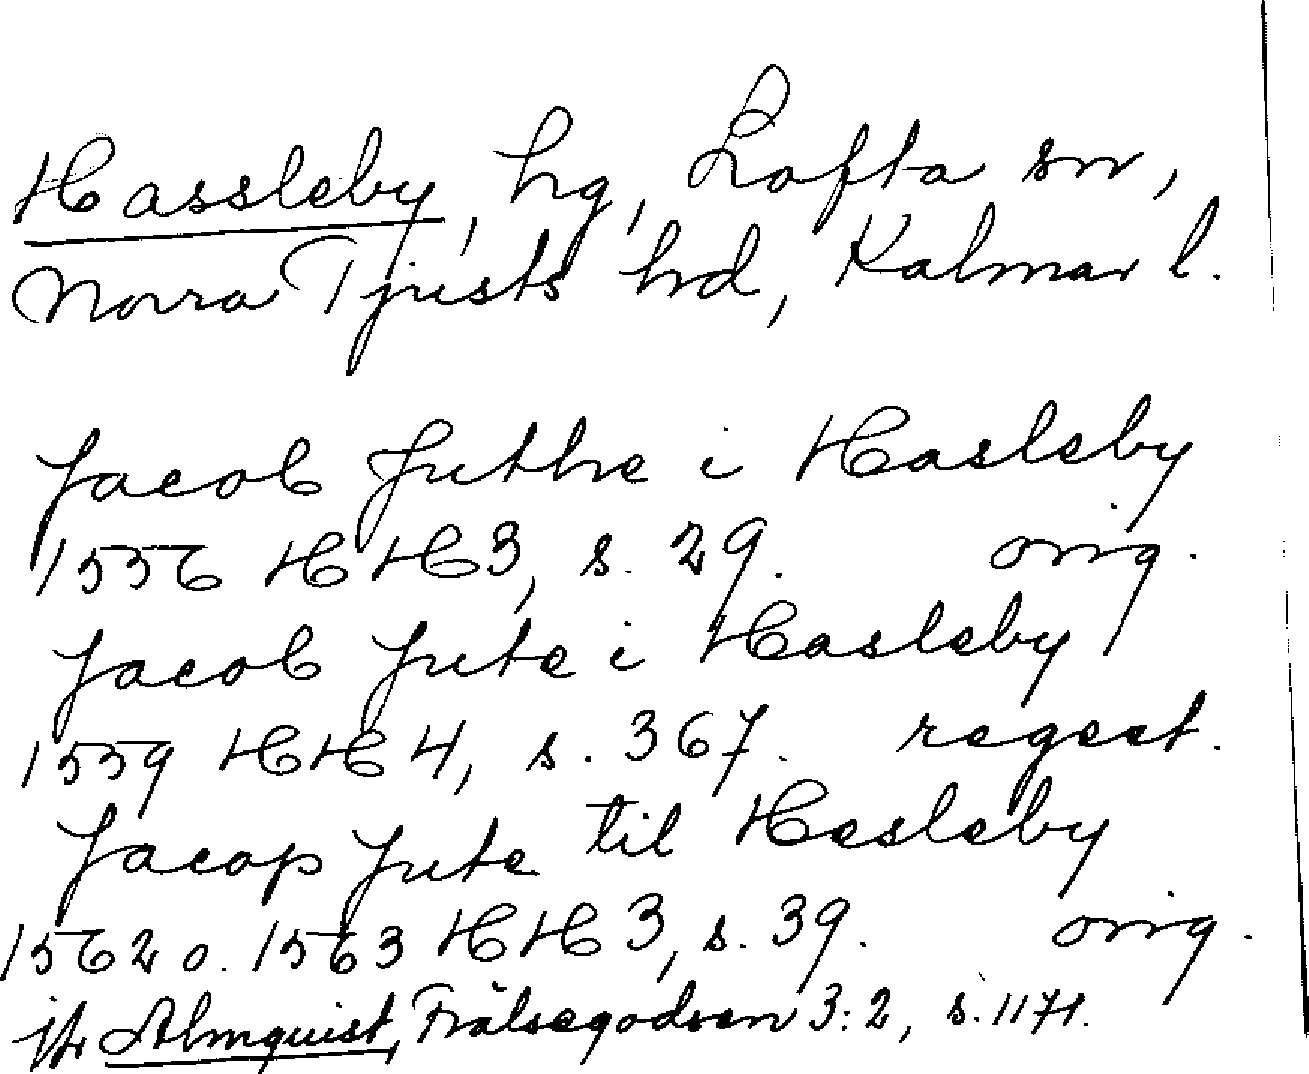 Hassleby, hg, Lofta sn,
Norra Tjusts hd, Kalmar l.
Jacob Juthe i Hasleby
1556 HH3, s. 29. orig.
Jacob Jute i Hasleby
1559 HH4, s. 367. regest.
Jacop Jute til Hesleby
1562 o. 1563 HH3, s. 39. orig.
jfr Almquist, Frälsegodsen 3:2, s. 1171.